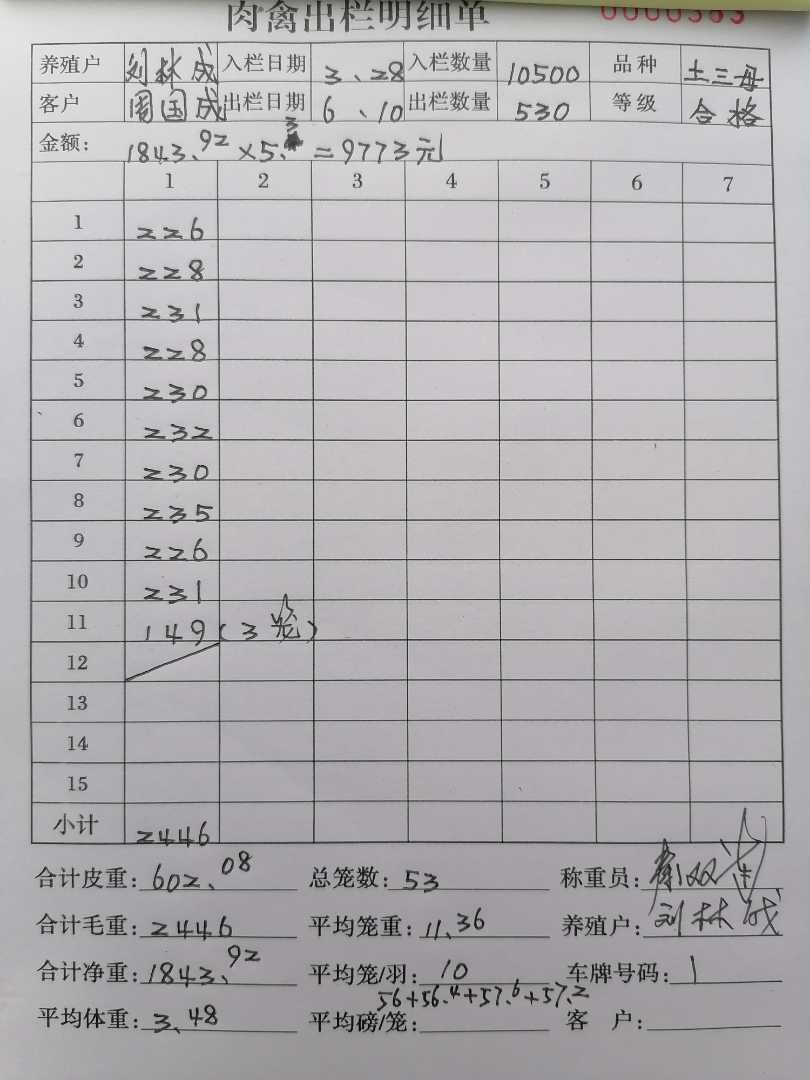 肉禽出栏明细单 0000383
养殖户 刘林成 入栏日期 3、28 入栏数量 10500 品种 土三母
客户 周国成 出栏日期 6、10 出栏数量 530 等级 合格
金额: 1843.92×5.3=9773元
1 2 3 4 5 6 7
1 226
2 228
3 231
4 228
5 230
6 232
7 230
8 235
9 226
10 231
11 149(3笼)
12
13
14
15
小计 2446
合计皮重: 602.08 总笼数: 53 称重员:
合计毛重: 2446 平均笼重: 11.36 养殖户: 刘林成
合计净重: 1843.92 平均笼/羽: 10 车牌号码: 1
56+56.4+57.6+57.2
平均体重: 3.48 平均磅/笼: 客 户: